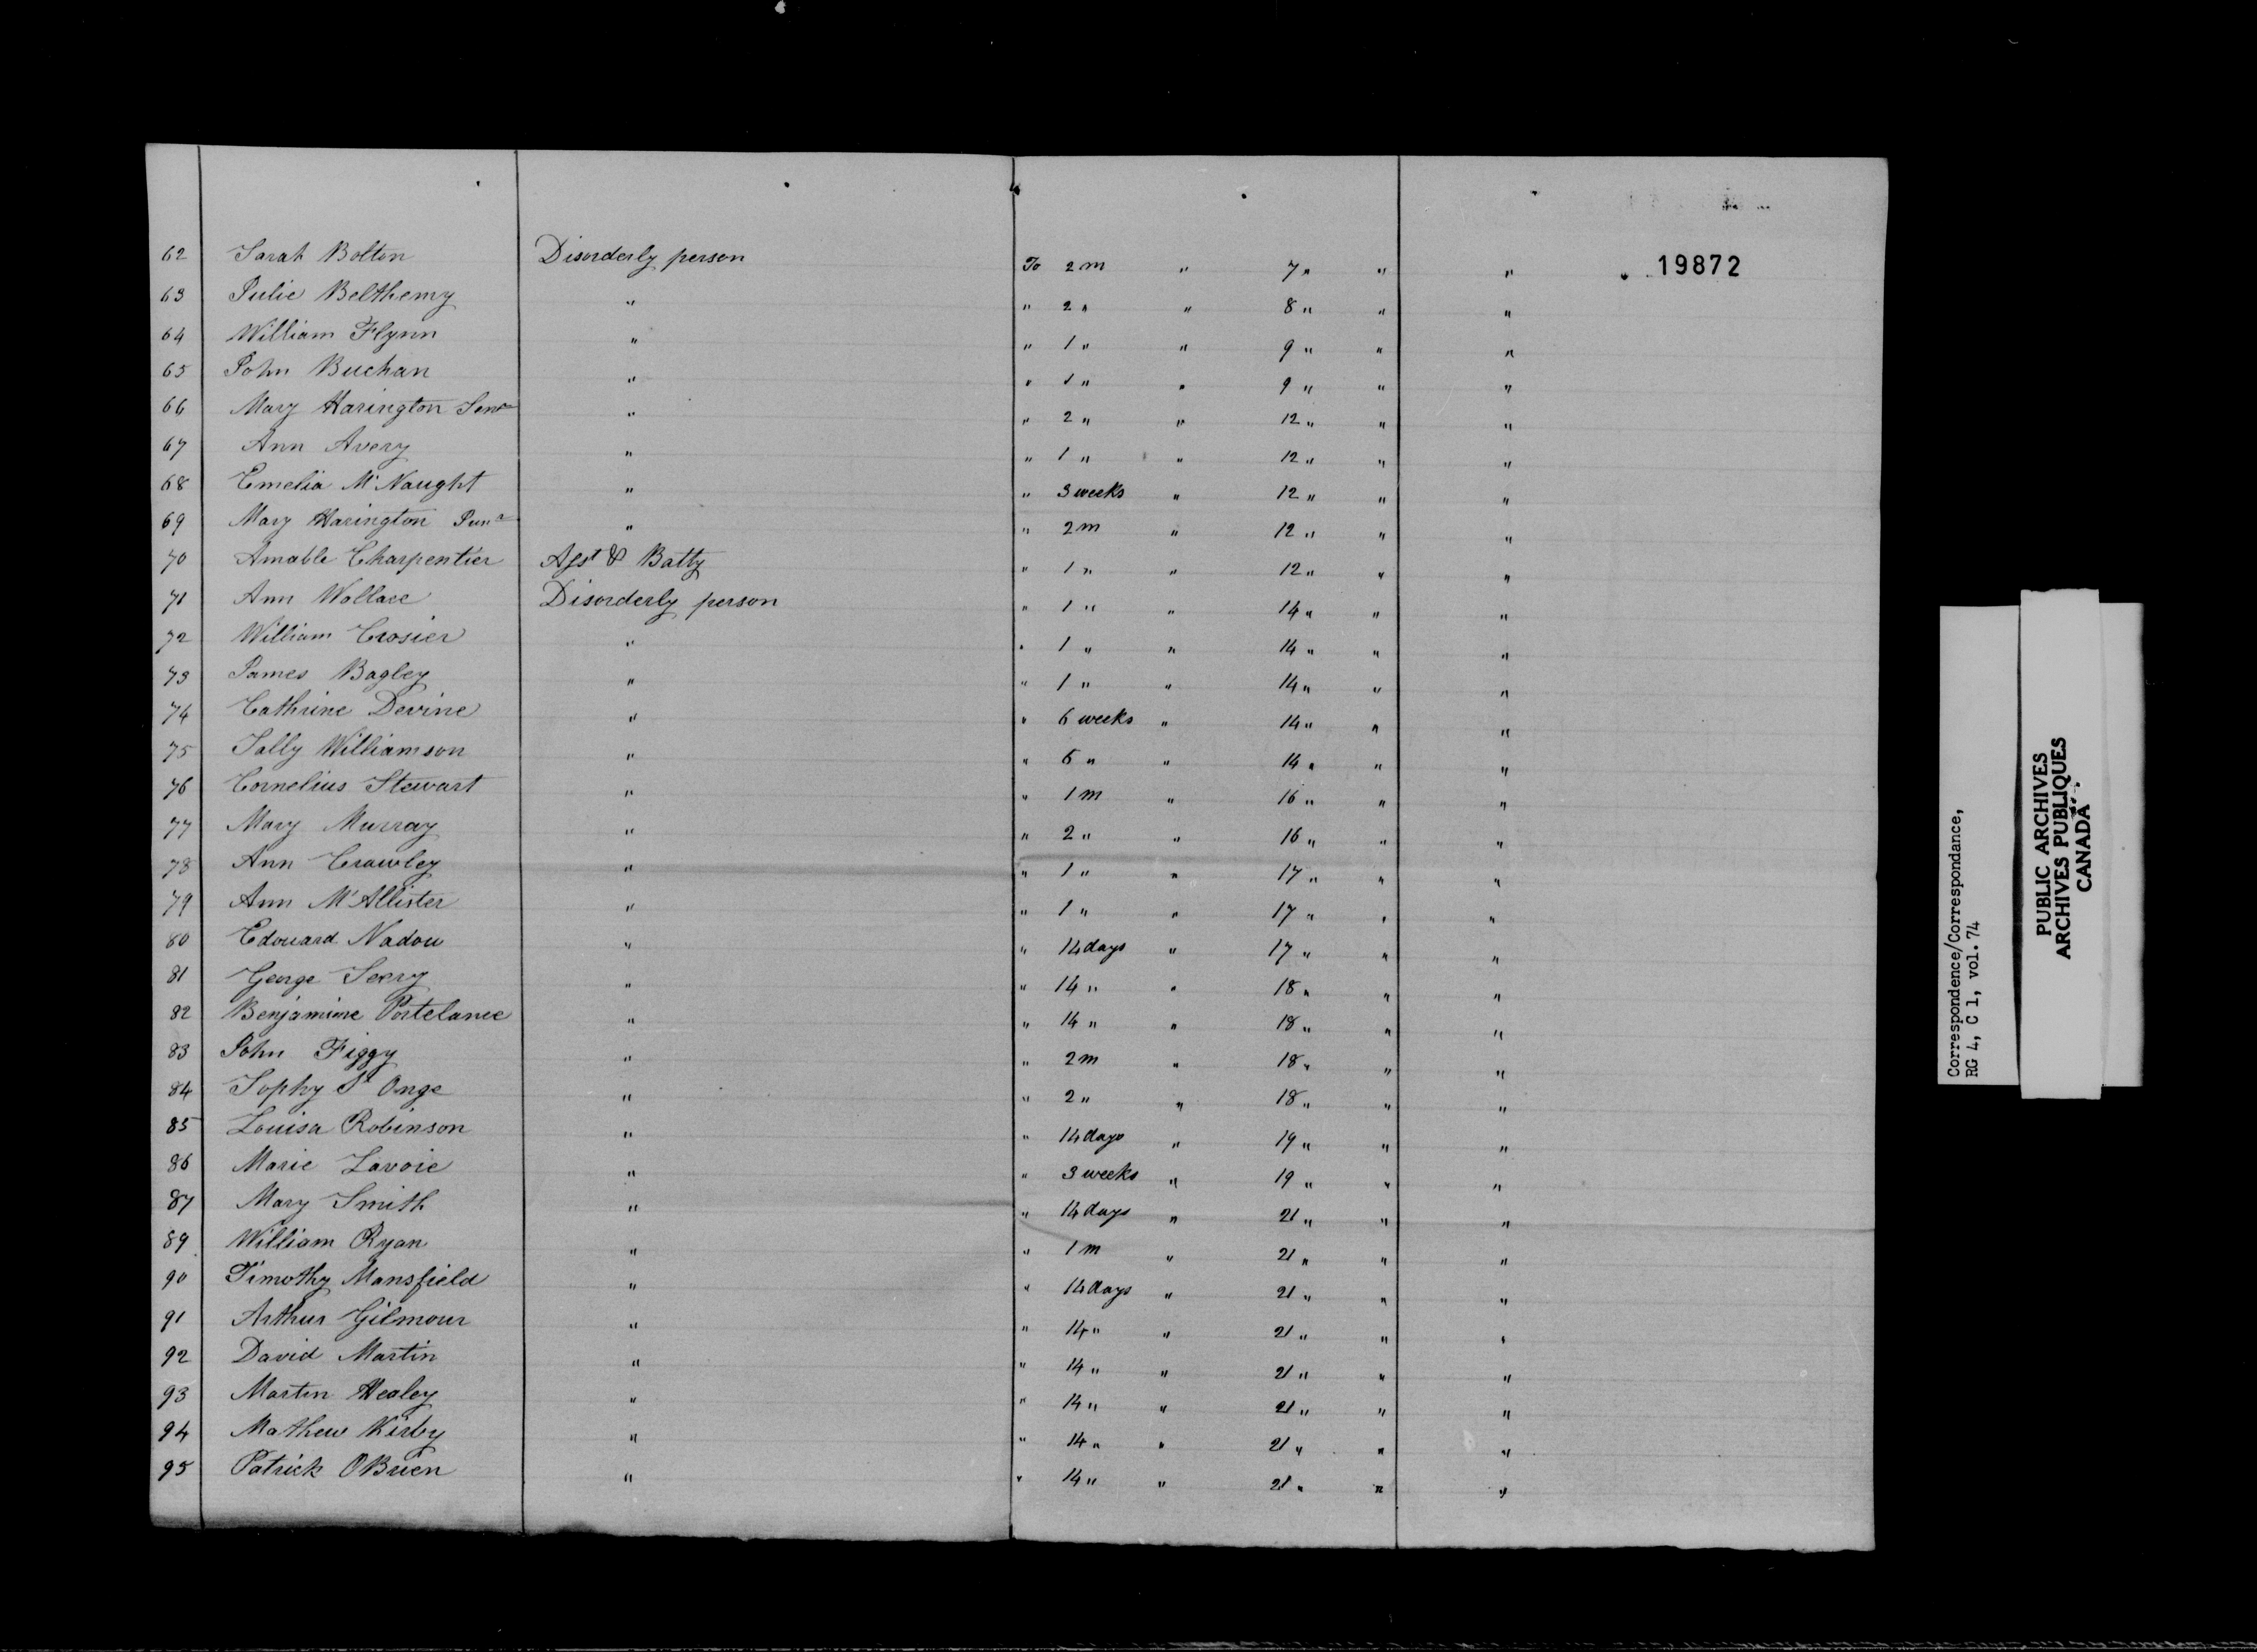 62 Sarah Bolton Disorderly person To 2 m " 7 " " " 19872
63 Julie Belthemy " " 2 " " 8 " " "
64 William Flynn " " 1 " " 9 " " "
65 John Buchan " " 1 " " 9 " " "
66 Mary Harington Senr " " 2 " " 12 " " "
67 Ann Avery " " 1 " " 12 " " "
68 Emelia McNaught " " 3 weeks " 12 " " "
69 Mary Harington Junr " " 2 m " 12 " " "
70 Amable Charpentier Asst & Batty " 1 " " 12 " " "
71 Ann Wallace Disorderly person " 1 " " 14 " " "
72 William Crosier " " 1 " " 14 " " "
73 James Bagley " " 1 " " 14 " " "
74 Cathrine Devine " " 6 weeks " 14 " " "
75 Sally Williamson " " 6 " " 14 " " "
76 Cornelius Stewart " " 1 m " 16 " " "
77 Mary Murray " " 2 " " 16 " " "
78 Ann Crawley " " 1 " " 17 " " "
79 Ann McAllister " " 1 " " 17 " " "
80 Edouard Nadou " " 14 days " 17 " " "
81 George " " 14 " " 18 " " "
82 Benjamine Portelance " " 14 " " 18 " " "
83 John Figgy " " 2 m " 18 " " "
84 Sophy St Onge " " 2 " " 18 " " "
85 Louisa Robinson " " 14 days " 19 " " "
86 Marie Lavoie " " 3 weeks " 19 " " "
87 Mary Smith " " 14 days " 21 " " "
89 William Ryan " " 1 m " 21 " " "
90 Timothy Mansfield " " 14 days " 21 " " "
91 Arthur Gilmour " " 14 " " 21 " " "
92 David Martin " " 14 " " 21 " " "
93 Martin Healey " " 14 " " 21 " " "
94 Mathew Kirby " " 14 " " 21 " " "
95 Patrick OBrien " " 14 " " 21 " " "
Correspondence/Correspondance,
RG 4, C 1, vol. 74
PUBLIC ARCHIVES
ARCHIVES PUBLIQUES
CANADA